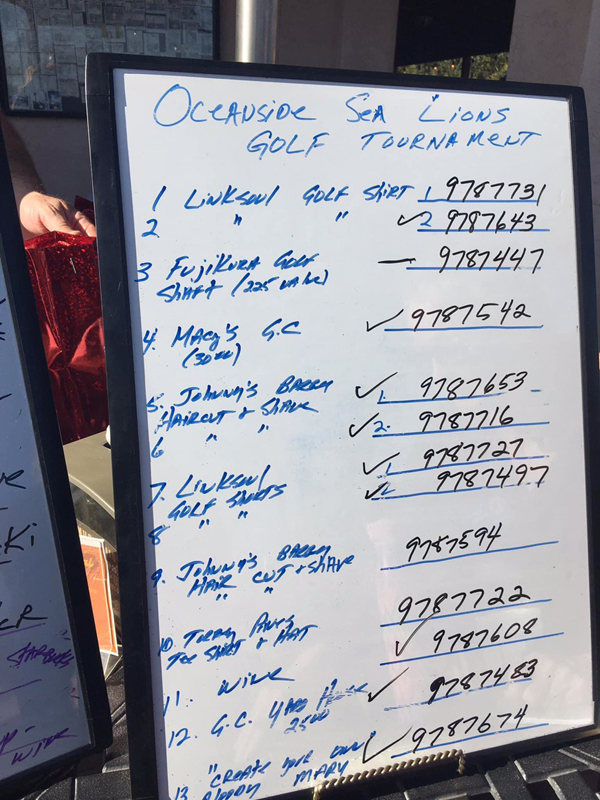 Oceanside Sea Lions
Golf Tournament
1 Linksoul Golf Shirt 1 9787731
2 " " ✓ 2 9787643
3 Fujikura Golf — 9787447
Shaft (225 value)
4. Macy's G.C ✓ 9787542
5. Johnny's Barry ✓ 1. 9787653
Haircut & Shave
6 " " ✓ 2. 9787716
7. Linksoul ✓ 1 9787727
Golf Shorts
8 " " ✓ 2 9787497
9. Johnny's Barry 9787594
Hair Cut & Shave
" "
10. Torrey Pines 9787722
Tee Shirt & Hat
✓ 9787608
11. Wine
12. G.C. Yard House ✓ 9787483
2500
13 "Create your own ✓ 9787674
Bloody Mary
ER
Starbucks
Wine